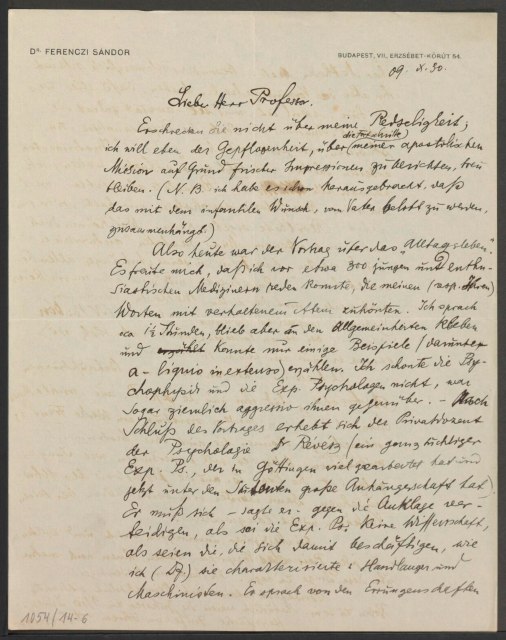 Dr. FERENCZI SÁNDOR
BUDAPEST, VII. ERZSÉBET-KÖRÚT 54.
09. X. 30.
Lieber Herr Professor.
Erschrecken Sie nicht über meine Redseligkeit;
ich will eben der Gepflogenheit, über (die Fortschritte) meiner apostolischen
Mission auf Grund frischer Impressionen zu berichten, treu
bleiben. (N.B. ich habe es schon herausgebracht, daß
das mit dem infantilen Wunsch, vom Vater gelobt zu werden,
zusammenhängt.)
Also heute war der Vortrag über das "Alltagsleben".
Es freute mich, daß ich vor etwa 300 jungen und enthu-
siastischen Medizinern reden konnte, die meinen (resp. Ihren)
Worten mit verhaltenem Atem zuhörten. Ich sprach
ca 1½ Stunden, blieb aber an den Allgemeinheiten kleben
und konnte nur einige Beispiele (darunter
a-liquis in extenso) erzählen. Ich schonte die Psy-
chophysik und die Exp. Psychologen nicht, war
sogar ziemlich aggressiv ihnen gegenüber. – Nach
Schluß des Vortrages erhebt sich der Privatdozent
der Psychologie Dr Révész (ein ganz tüchtiger
Exp. Ps., der in Göttingen viel gearbeitet hat und
jetzt unter den Studenten große Anhängerschaft hat)
Er muß sich – sagte er – gegen die Anklage ver-
teidigen, als sei die Exp. Ps. keine Wissenschaft,
als seien die, die sich damit beschäftigen, wie
ich (Dr. F.) sie charakterisierte: Handlanger und
Maschinisten. Er sprach von den Errungenschaften
1054/14-6